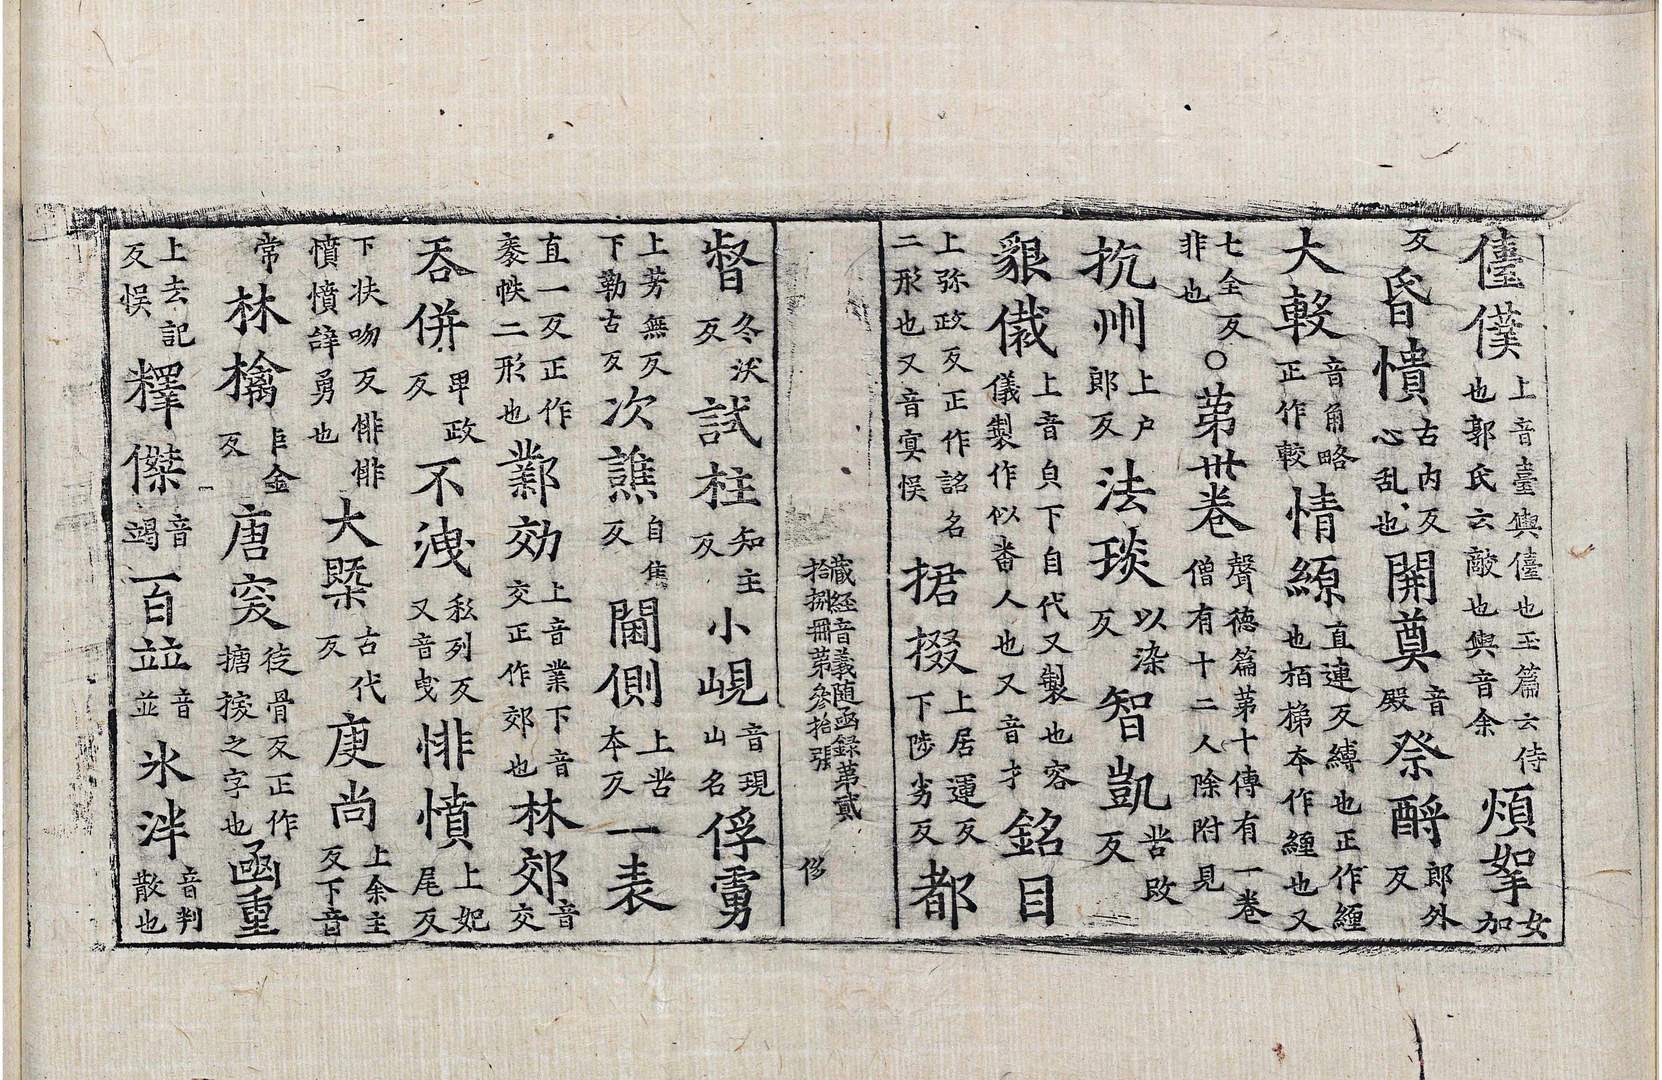 儓僕上音臺輿儓也玉篇云侍也郭氏云敵也輿音余煩挐女加
反昏憒古内反心乱也開奠音殿祭酹郎外反
大䡈音角略正作較情縓直連反縛也正作緾也又也栢梯本作緾也又
七全反非也○第卅卷聲德篇第十傳有一卷僧有十二人除附見
抗州上户郎反法琰以染反智凱苦改反
貇儎上音㒵下自代又製也容儀製作似畨人也又音才銘目
上弥政反正作詺名二形也又音寞悮捃掇上居運反下陟劣反都
藏經音義随函録第貳拾捌冊第叄拾張 㑋
督冬沃反試柱知主反小峴音現山名俘虜
上芳無反下勒古反次譙自焦反閫側上苦本反一袠
直一反正作袠帙二形也鄴効上音業下音交正作郊也林郊音交
吞併卑政反不洩私列反又音曳悱憤上妃尾反
下扶吻反悱悱憤憤誶勇也大槩古代反庾尚上余主反下音
常林檎巨金反唐突徒骨反正作搪揬之字也凾重
上去記反悮釋傑音竭百竝音並氷泮音判散也